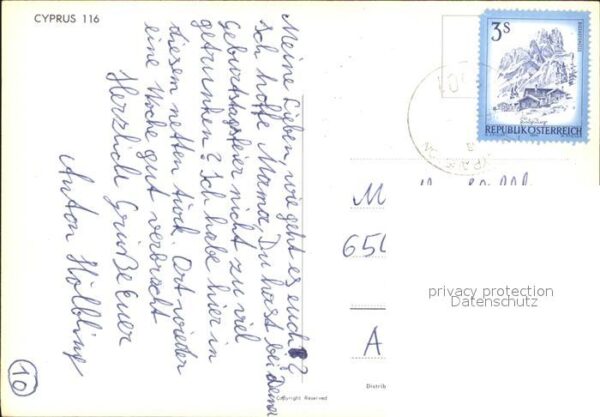 CYPRUS 116
Meine Lieben, wie geht es euch?
Ich hoffe Mama, Du hast bei Deiner
Geburtstagsfeier nicht zu viel
getrunken? Ich habe hier in
diesem netten türk. Ort wieder
eine Woche gut verbracht
Herzliche Grüße Euer
Anton Hölbling
10
3s
REPUBLIK ÖSTERREICH
M
650
A
privacy protection
Datenschutz
Copyright Reserved
Distrib